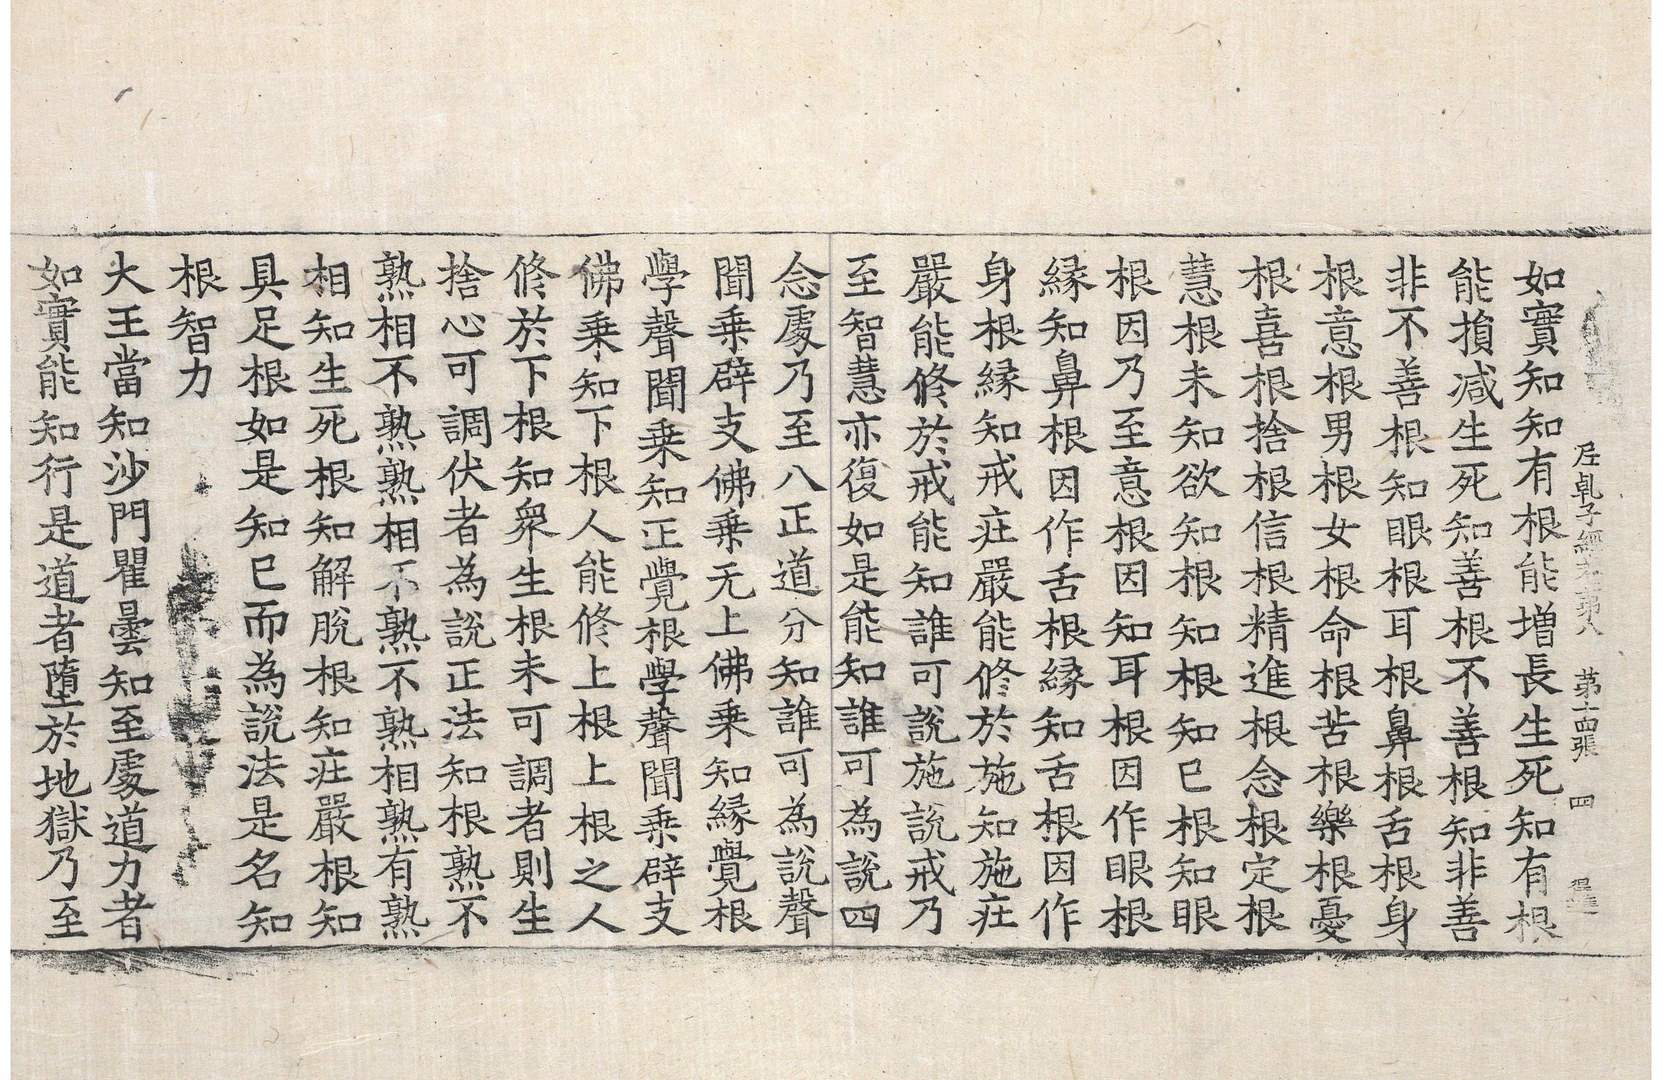 尼乹子經卷第八　第十四張　四
如實知知有根能增長生死知有根
能損减生死知善根不善根知非善
非不善根知眼根耳根鼻根舌根身
根意根男根女根命根苦根樂根憂
根喜根捨根信根精進根念根定根
慧根未知欲知根知根知已根知眼
根因乃至意根因知耳根因作眼根
緣知鼻根因作舌根緣知舌根因作
身根緣知戒莊嚴能修於施知施莊
嚴能修於戒能知誰可說施說戒乃
至智慧亦復如是能知誰可為說四
念處乃至八正道分知誰可為說聲
聞乗辟支佛乗无上佛乗知緣覺根
學聲聞乗知正覺根學聲聞乗辟支
佛乗知下根人能修上根上根之人
修於下根知衆生根未可調者則生
捨心可調伏者為說正法知根熟不
熟相不熟熟相不熟不熟相熟有熟
相知生死根知解脫根知莊嚴根知
具足根如是知已而為說法是名知
根智力
大王當知沙門瞿曇知至處道力者
如實能知行是道者墮於地獄乃至